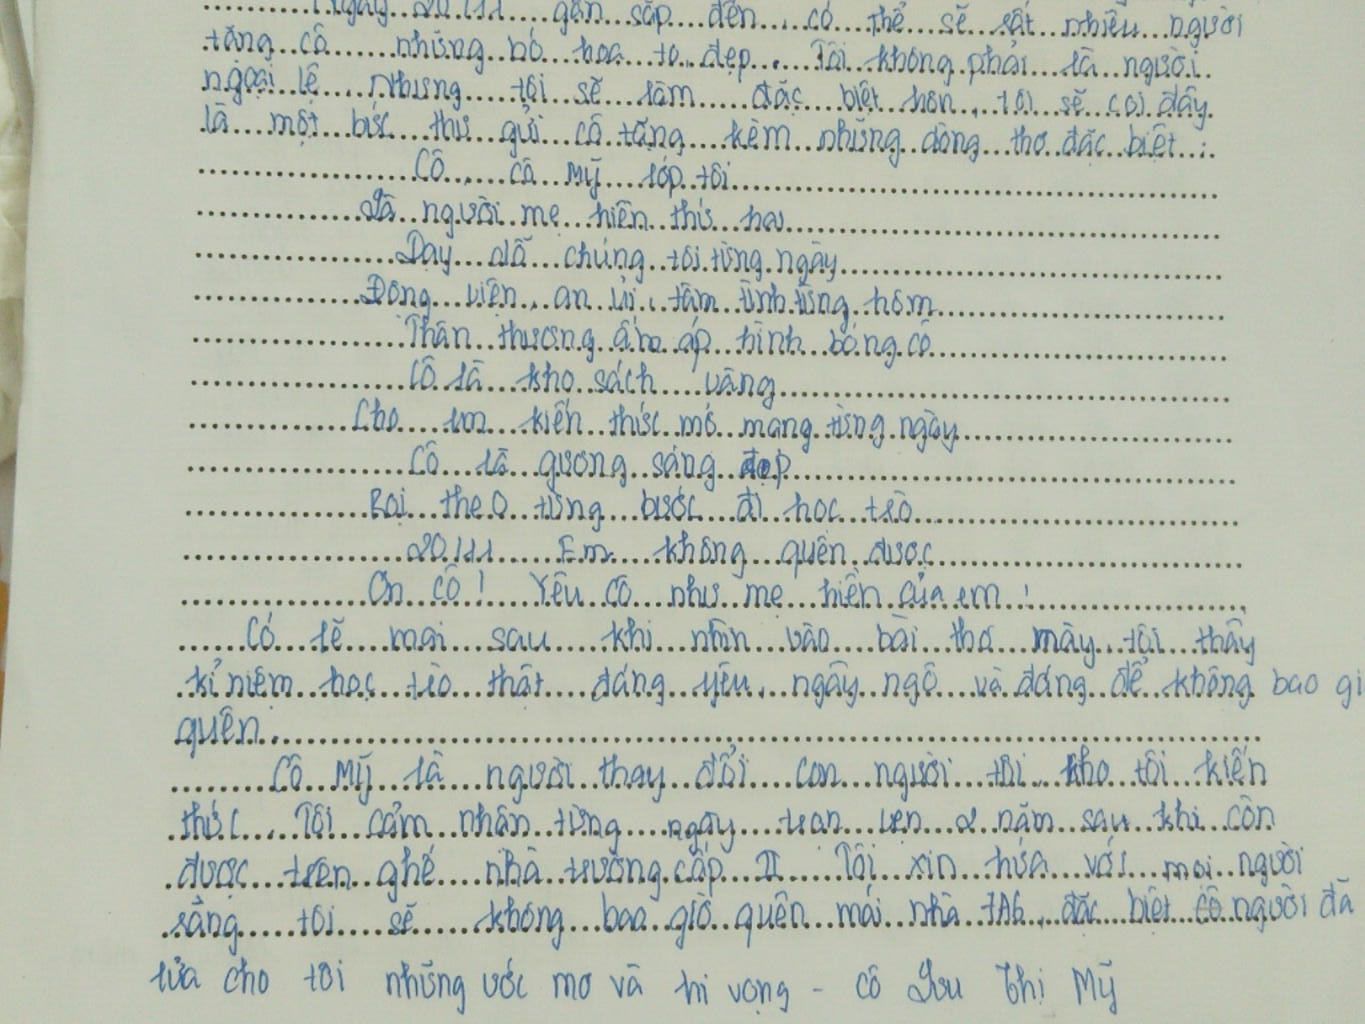 Ngày 20.111 gần sắp đến, có thể sẽ rất nhiều người
tặng cô những bó hoa to, đẹp. Tôi không phải là người
ngoại lệ. Nhưng tôi sẽ làm đặc biệt hơn, tôi sẽ coi đây
là một bức thư gửi cô tặng kèm những dòng thơ đặc biệt:
Cô, cô Mỹ lớp tôi
Là người mẹ hiền thứ hai
Dạy dỗ chúng tôi từng ngày
Động viên, an ủi, tâm tình từng hôm
Thân thương ấm áp hình bóng cô
Cô là kho sách vàng
Cho em kiến thức mở mang từng ngày
Cô là gương sáng đẹp
Rọi theo từng bước đi học trò
20.111 Em không quên được
Ơn cô! Yêu cô như mẹ hiền của em!
Có lẽ mai sau khi nhìn vào bài thơ mày, tôi thấy
kỉ niệm học trò thật đáng yêu, ngây ngô và đáng để không bao gi
quên.
Cô Mỹ là người thay đổi con người tôi, cho tôi kiến
thức. Tôi cảm nhân từng ngày 2 năm sau khi còn
được trên ghế nhà trường cấp II. Tôi xin hứa với mọi người
rằng tôi sẽ không bao giờ quên mái nhà 7A6, đặc biệt cô người đã
lửa cho tôi những ước mơ và hi vọng - cô Lưu Thị Mỹ